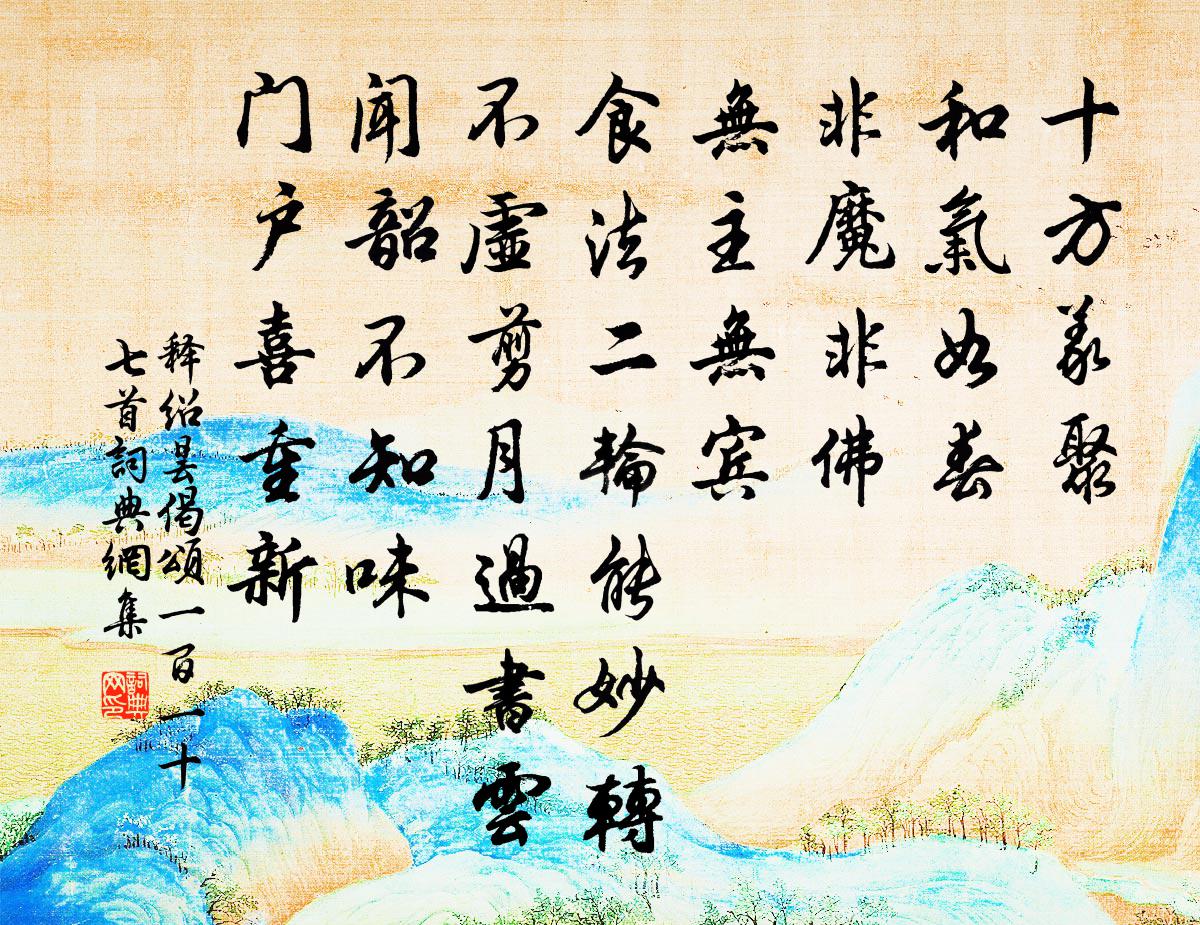 十方義聚
和氣如春
非魔非佛
無主無宾
食法二輪能妙轉
不虛剪月過書雲
闻韶不知味
门户喜重新
释绍昙偈頌一百一十
七首詞典網集
詞典网印